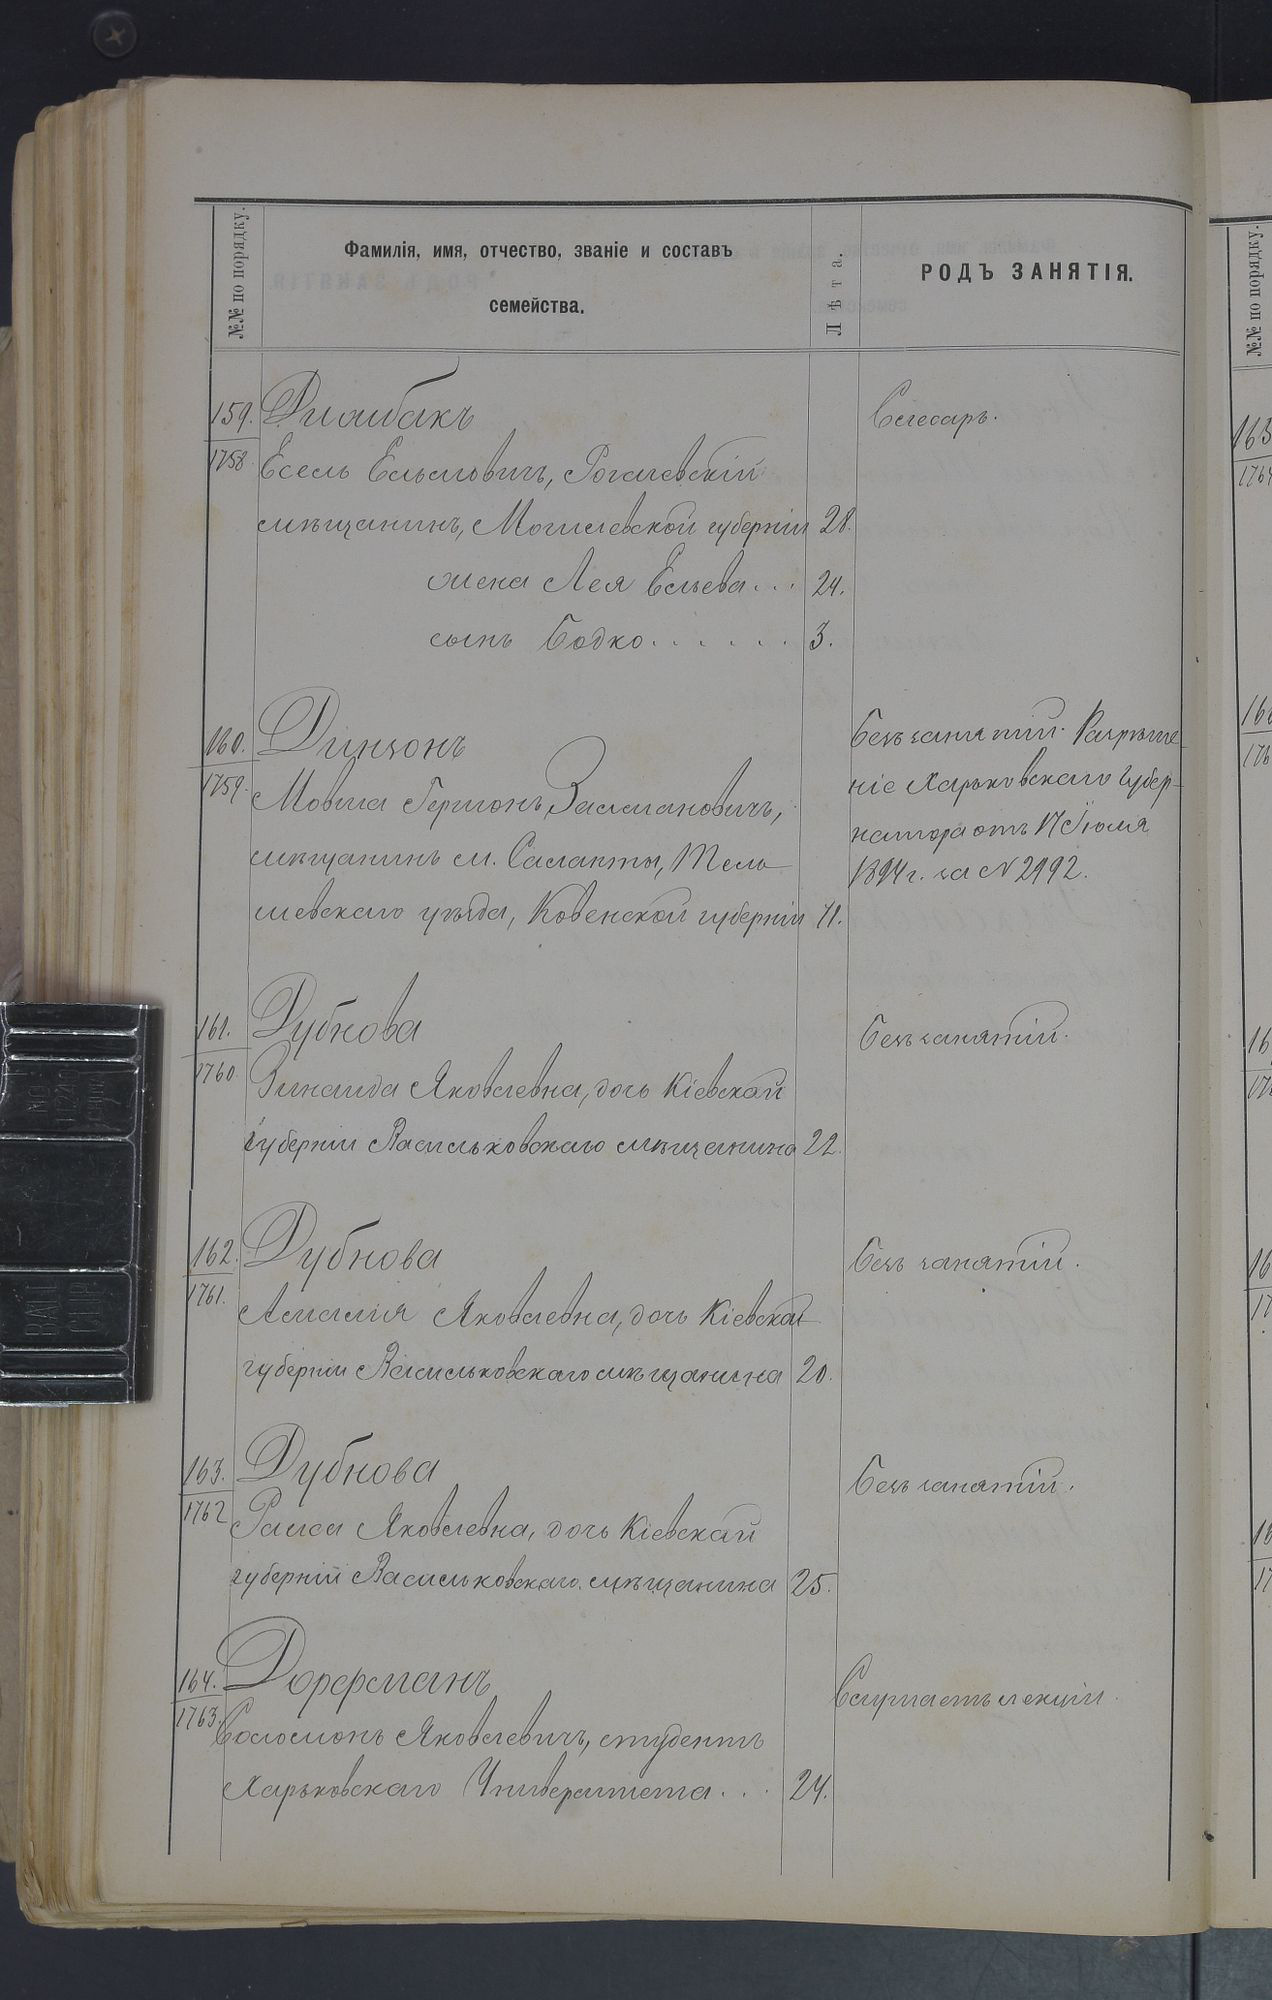 №№ по порядку.
Фамилія, имя, отчество, званіе и составъ
семейства.
Лѣта.
РОДЪ ЗАНЯТІЯ.
159.
1758
Слесарь.
Есель Ельевичъ, Рогачевскій
мѣщанинъ, Могилевской губерніи 28.
жена Лея Ельева... 24.
сынъ Бодко...... 3.
160. Динзонъ
1759.
Безъ занятій. Разрѣше-
ніе Харьковскаго Губер-
натора отъ 17 Іюля
1894 г. за № 2992.
Мовша Гершонъ Залмановичъ,
мѣщанинъ м. Саланты, Тель-
шевскаго уѣзда, Ковенской губерніи 71.
161. Дубнова
1760.
Безъ занятій.
Зинаида Яковлевна, дочь Кіевской
губерніи Васильковскаго мѣщанина 22.
162. Дубнова
1761.
Безъ занятій.
Амалія Яковлевна, дочь Кіевской
губерніи Васильковскаго мѣщанина 20.
163. Дубнова
1762
Безъ занятій.
Раиса Яковлевна, дочь Кіевской
губерніи Васильковскаго мѣщанина 25.
164. Дорфманъ
1763.
Слушаетъ лекціи.
Соломонъ Яковлевичъ, студентъ
Харьковскаго Университета... 24.
№№ по порядку.